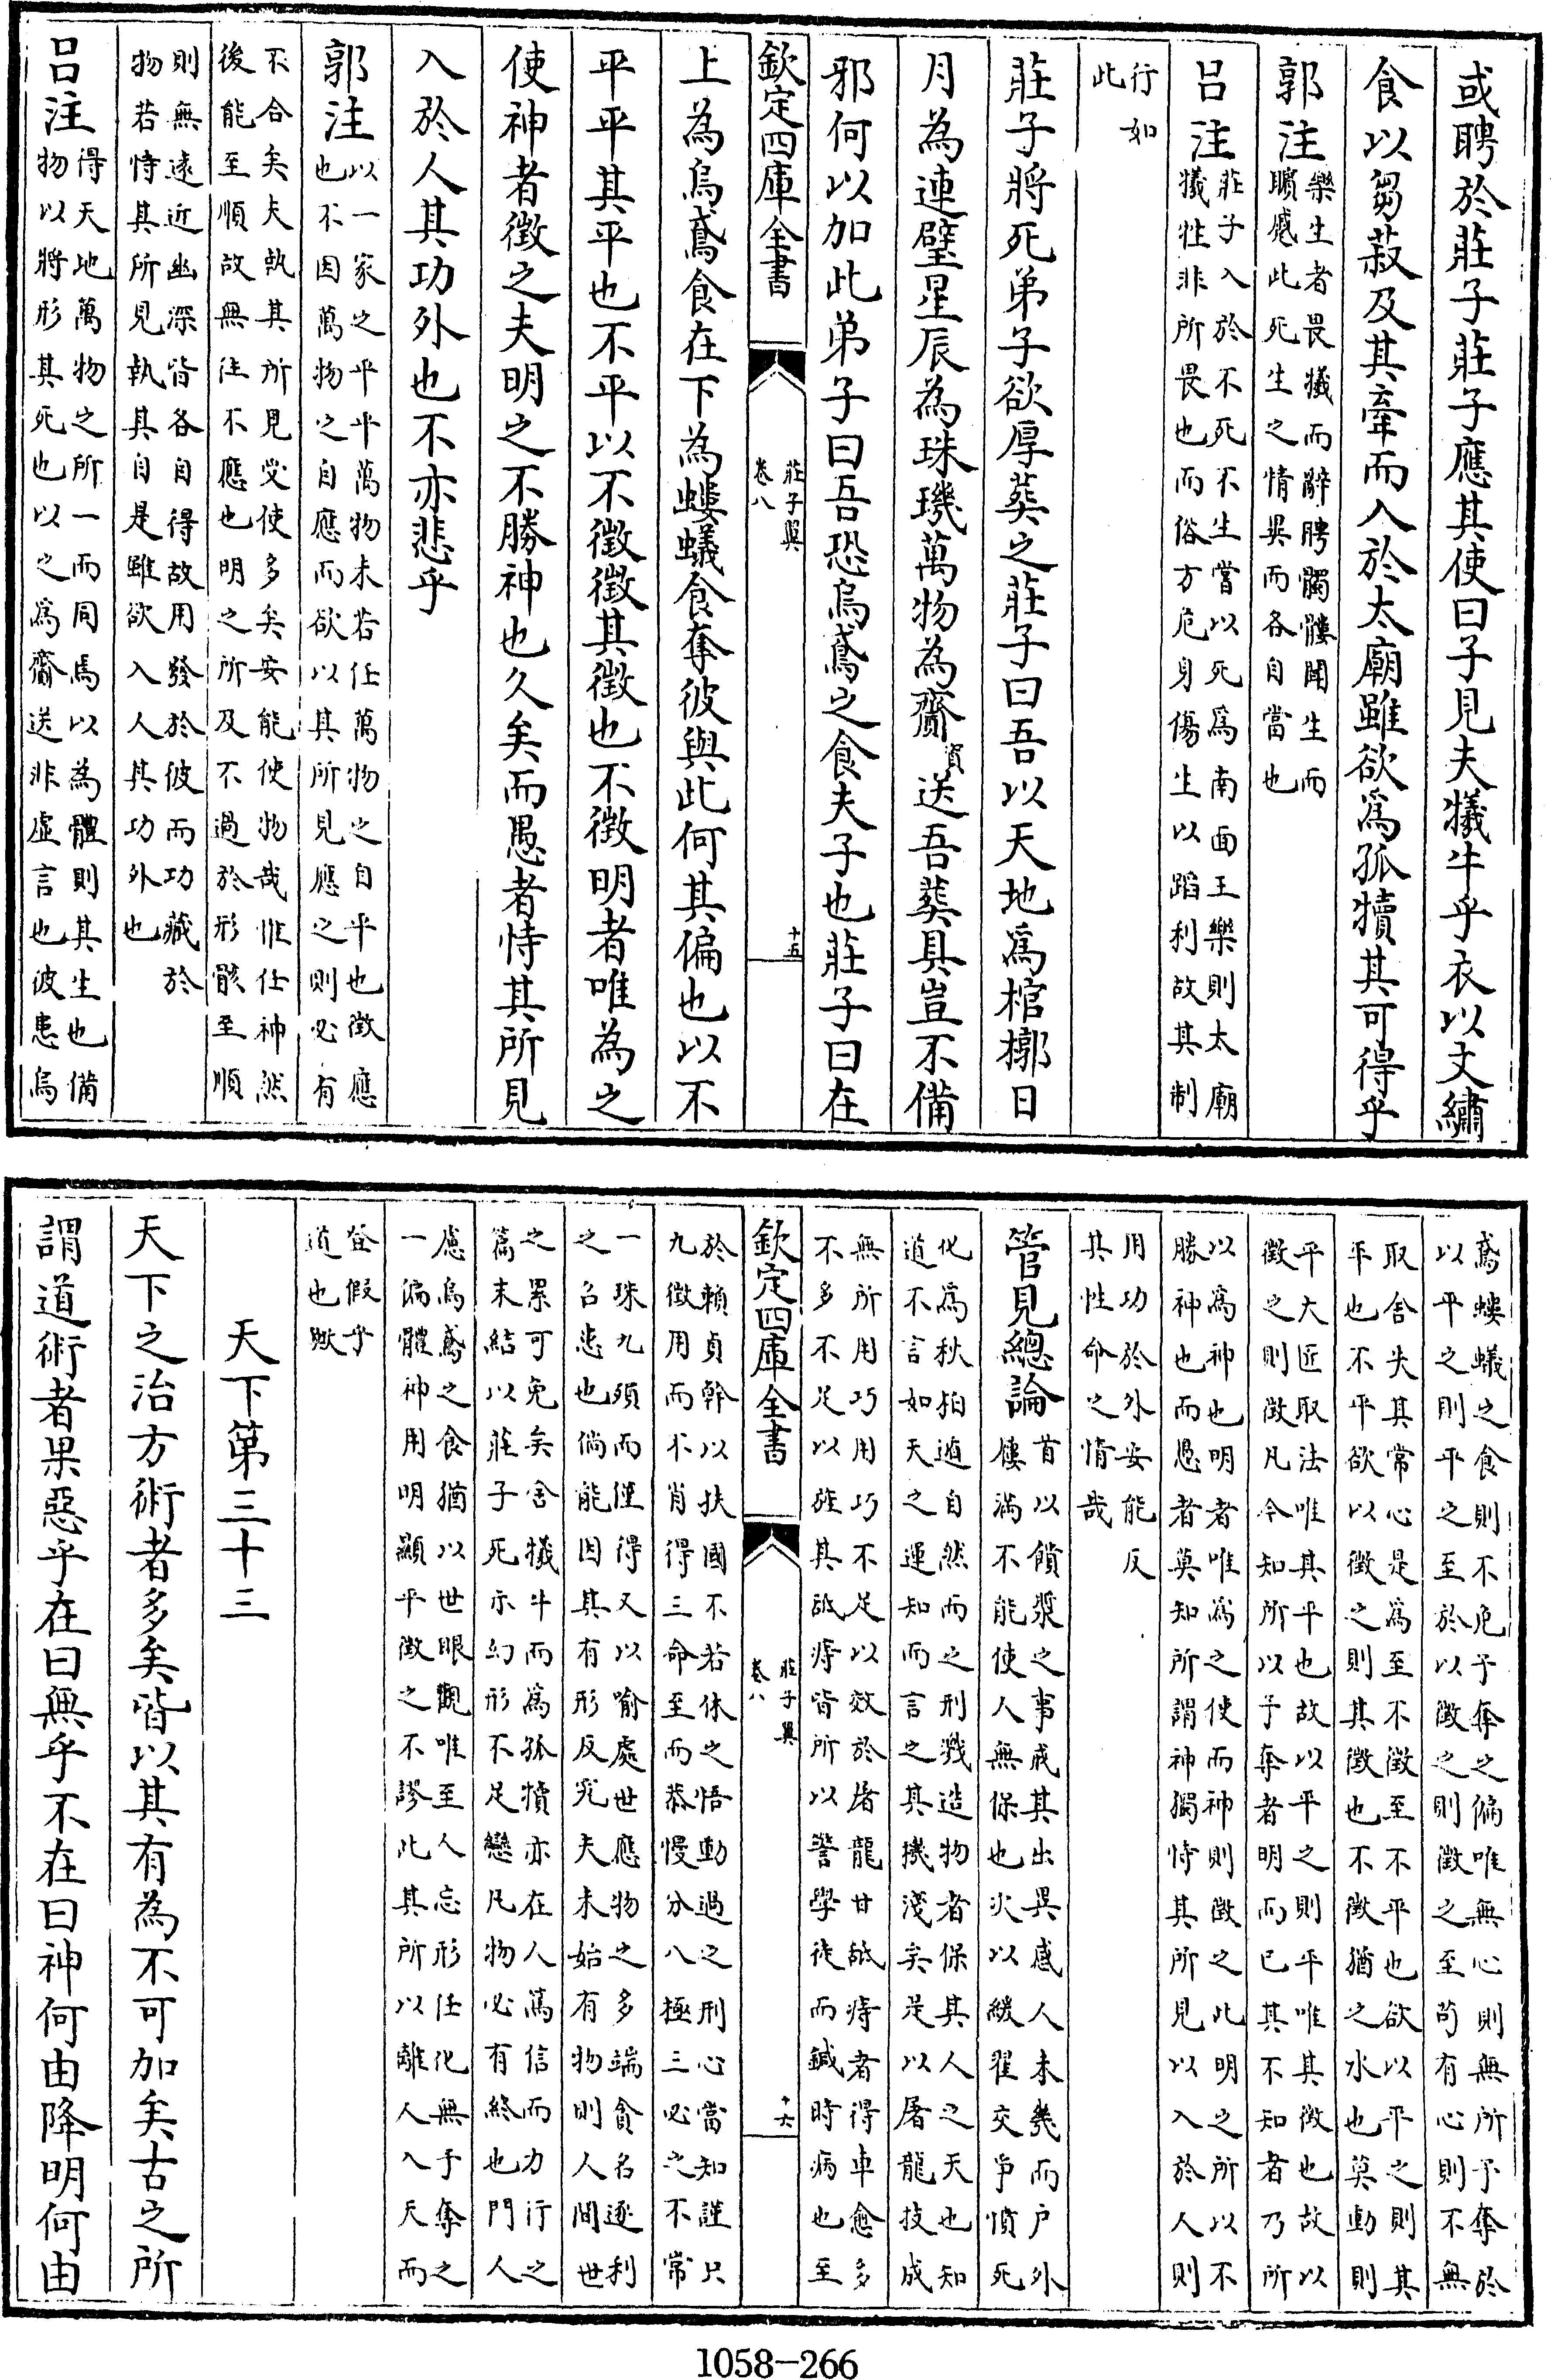 或聘於莊子莊子應其使曰子見夫犧牛乎衣以文繡
食以芻菽及其牽而入於太廟雖欲爲孤犢其可得乎
郭注樂生者畏犧而辭聘髑髏聞生而
矉慼此死生之情異而各自當也
呂注莊子入於不死不生嘗以死爲南面王樂則太廟
犧牲非所畏也而俗方危身傷生以蹈利故其制
行如
此
莊子將死弟子欲厚葬之莊子曰吾以天地爲棺槨日
月為連璧星辰為珠璣萬物為齎資送吾葬具豈不備
邪何以加此弟子曰吾恐烏鳶之食夫子也莊子曰在
欽定四庫全書
莊子翼
卷八
十五
上為烏鳶食在下為螻蟻食奪彼與此何其偏也以不
平平其平也不平以不徵徵其徵也不徵明者唯為之
使神者徵之夫明之不勝神也久矣而愚者恃其所見
入於人其功外也不亦悲乎
郭注以一家之平平萬物未若任萬物之自平也徵應
也不因萬物之自應而欲以其所見應之則必有
不合矣夫執其所見受使多矣安能使物哉惟任神然
後能至順故無往不應也明之所及不過於形骸至順
則無遠近幽深皆各自得故用發於彼而功藏於
物若恃其所見執其自是雖欲入人其功外也
呂注得天地萬物之所一而同焉以為體則其生也備
物以將形其死也以之爲齎送非虛言也彼患烏
鳶螻蟻之食則不免予奪之偏唯無心則無所予奪於
以平之則平之至於以徵之則徵之至苟有心則不無
取舍失其常心是爲至不徵至不平也欲以平之則其
平也不平欲以徵之則其徵也不徵猶之水也莫動則
平大匠取法唯其平也故以平之則平唯其徵也故以
徵之則徵凡今知所以予奪者明而已其不知者乃所
以爲神也明者唯爲之使而神則徵之此明之所以不
勝神也而愚者莫知所謂神獨恃其所見以入於人則
用功於外安能反
其性命之情哉
管見總論首以饋漿之事戒其出異感人未幾而户外
屨滿不能使人無保也次以緩翟交爭憤死
化爲秋柏遁自然而之刑戮造物者保其人之天也知
道不言如天之運知而言之其機淺矣是以屠龍技成
無所用巧用巧不足以效於屠龍甘舐痔者得車愈多
不多不足以旌其舐痔皆所以警學徒而鍼時病也至
欽定四庫全書
莊子翼
卷八
十六
於賴貞幹以扶國不若休之悟動過之刑心當知謹只
九徵用而不肖得三命至而恭慢分八極三必之不常
一珠九頷而僅得又以喻處世應物之多端貪名逐利
之召患也倘能因其有形反究夫未始有物則人間世
之累可免矣舍犧牛而爲孤犢亦在人篤信而力行之
篇末結以莊子死亦幻形不足戀凡物必有終也門人
慮烏鳶之食猶以世眼觀唯至人忘形任化無予奪之
一偏體神用明顯平徵之不謬此其所以離人入天而
登假乎
道也歟
天下第三十三
天下之治方術者多矣皆以其有為不可加矣古之所
謂道術者果惡乎在曰無乎不在曰神何由降明何由
1058-266